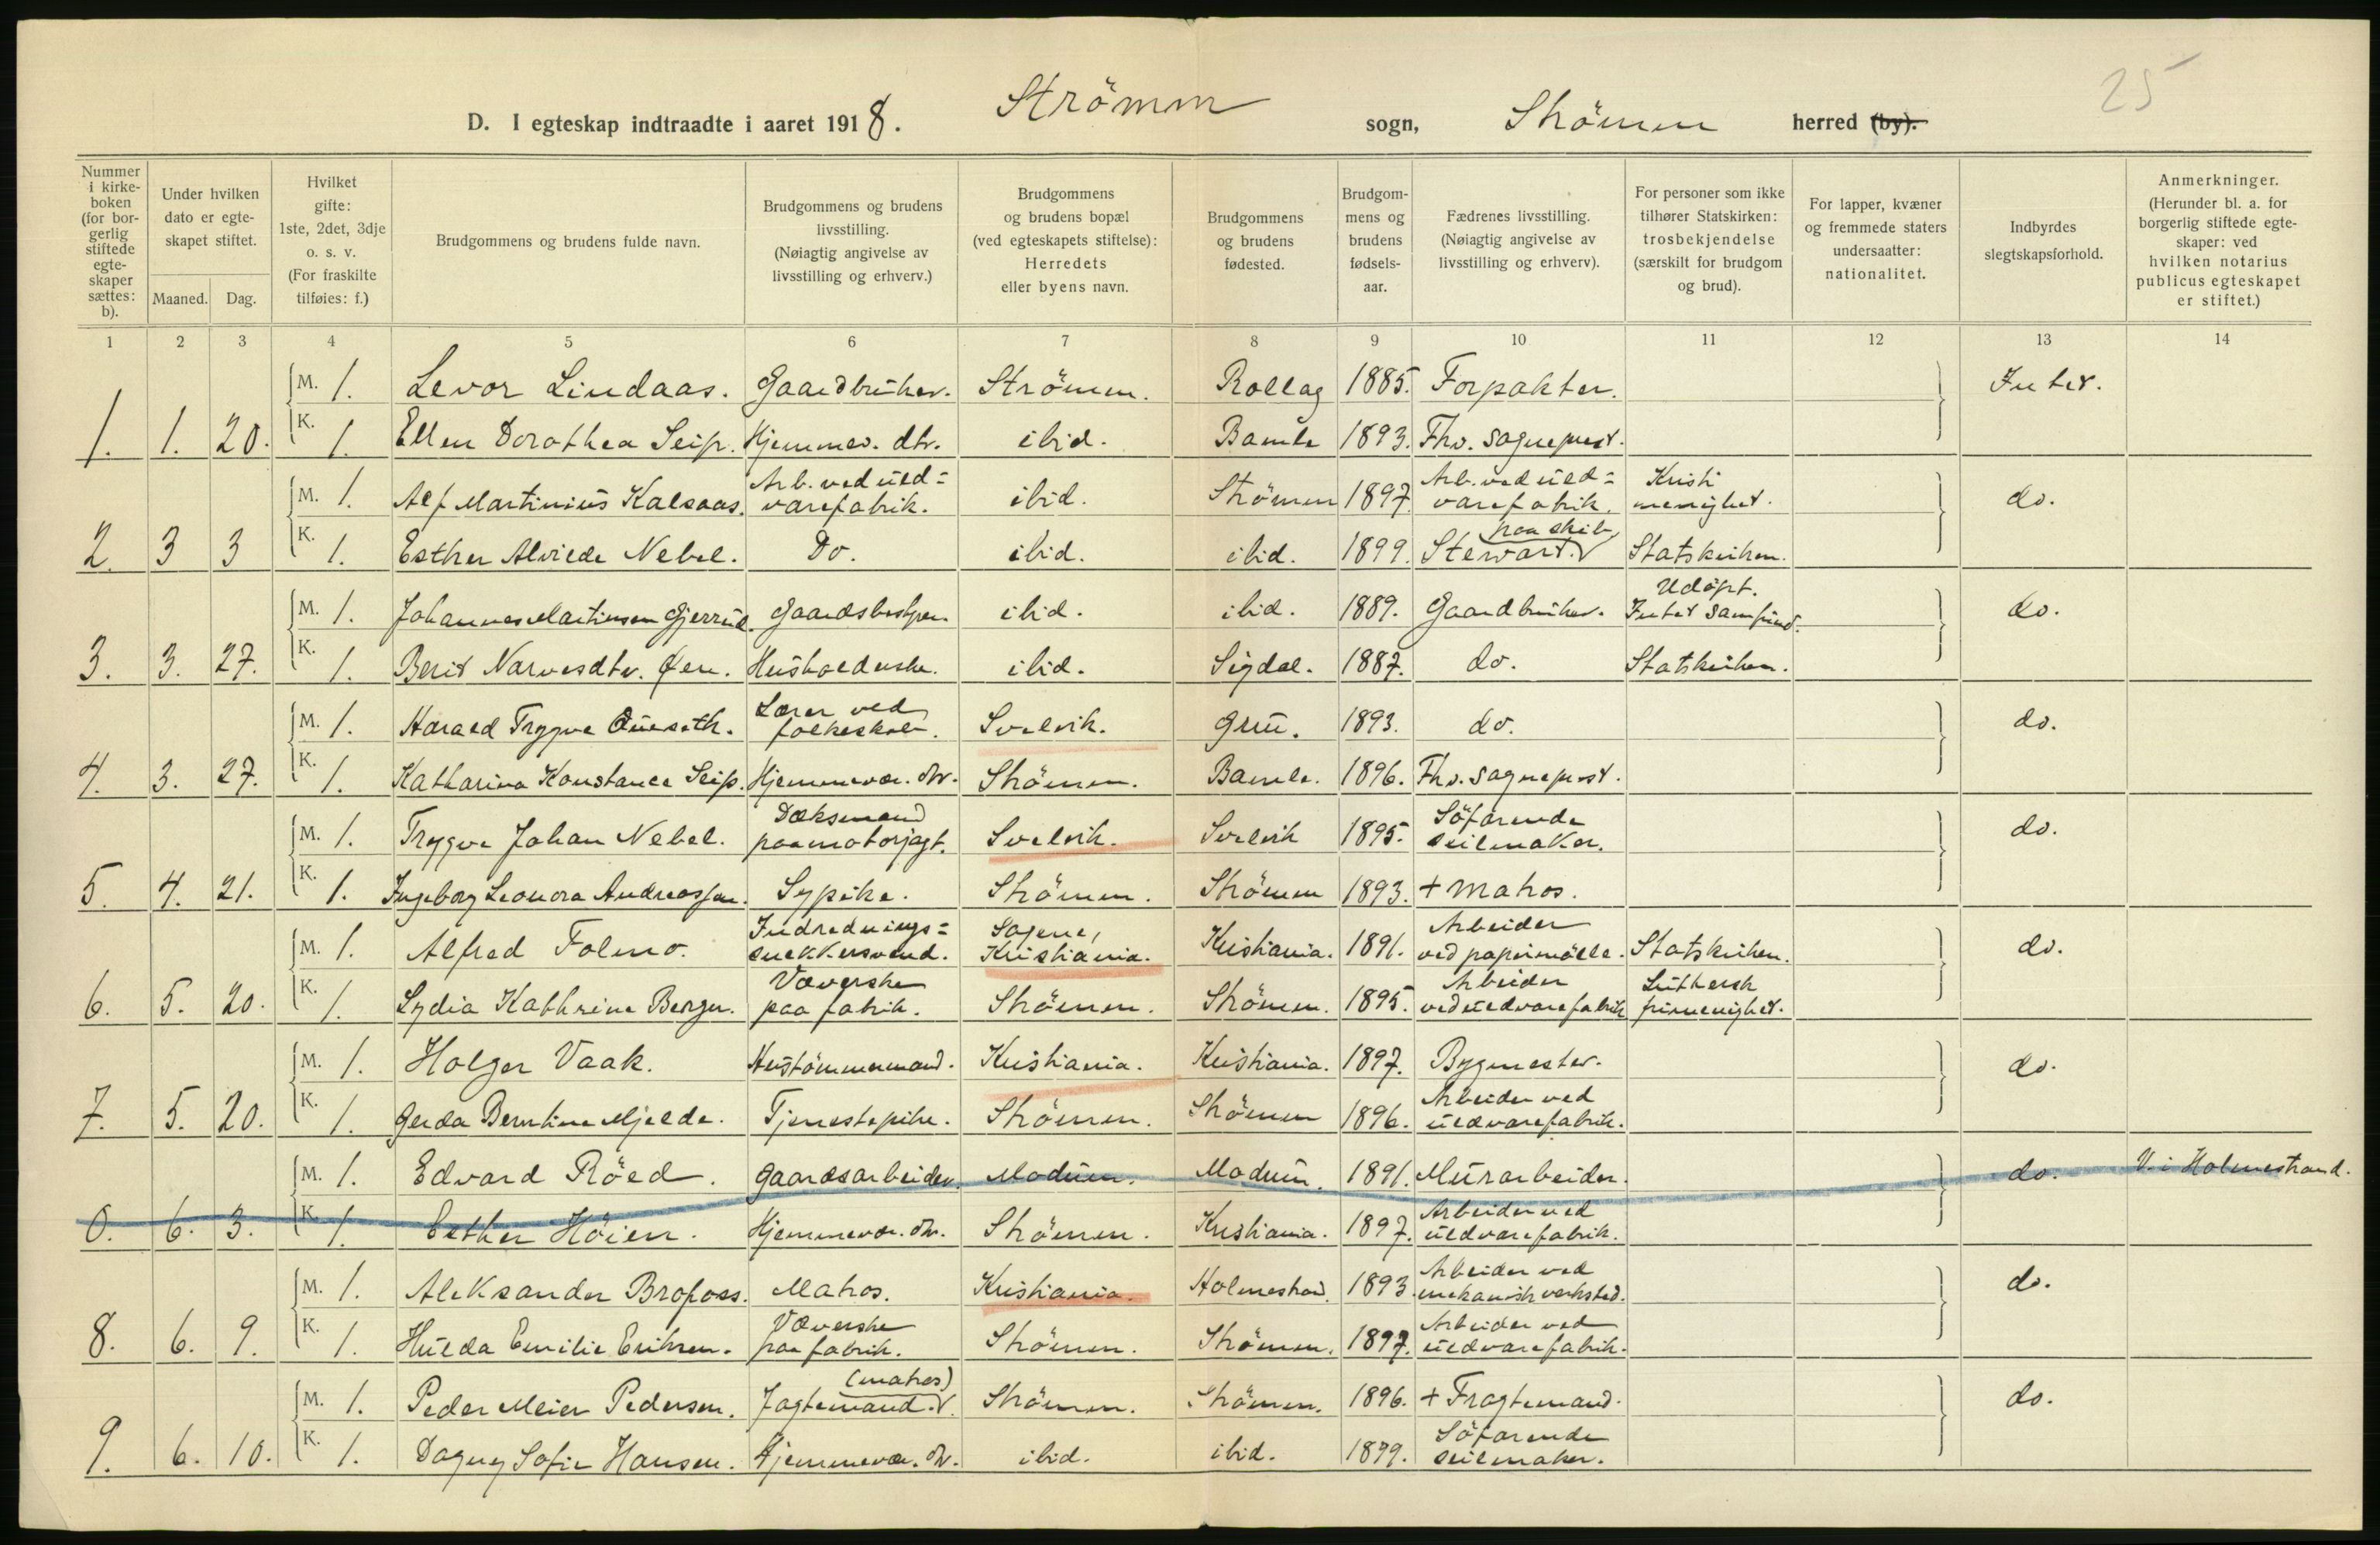 25
D. I egteskap indtraadte i aaret 1918. Strömm sogn, Strömm herred (by).
Nummer i kirkeboken (for borgerlig stiftede egteskaper sættes: b).
Under hvilken dato er egteskapet stiftet.
Maaned. Dag.
Hvilket gifte: 1ste, 2det, 3dje o. s. v. (For fraskilte tilføies: f.)
Brudgommens og brudens fulde navn.
Brudgommens og brudens livsstilling. (Nøiagtig angivelse av livsstilling og erhverv.)
Brudgommens og brudens bopæl (ved egteskapets stiftelse): Herredets eller byens navn.
Brudgommens og brudens fødested.
Brudgommens og brudens fødselsaar.
Fædrenes livsstilling. (Nøiagtig angivelse av livsstilling og erhverv).
For personer som ikke tilhører Statskirken: trosbekjendelse (særskilt for brudgom og brud).
For lapper, kvæner og fremmede staters undersaatter: nationalitet.
Indbyrdes slegtskapsforhold.
Anmerkninger. (Herunder bl. a. for borgerlig stiftede egteskaper: ved hvilken notarius publicus egteskapet er stiftet.)
1 2 3 4 5 6 7 8 9 10 11 12 13 14
M. 1. Levor Lindaas. Gaardbruker. Strömm. Rollag 1885. Forpakter. Intet.
1. 1. 20. K. 1. Ellen Dorothea Seip. Hjemmev. dtr. ibid. Bamle 1893. Fhv. sogneprest.
M. 1. Alf Martinius Kalsaas. Arb. ved uld=varefabrik. ibid. Strömm 1897. Arb. ved uld=varefabrik. Kristi menighet. do.
2. 3 3 K. 1. Esther Alvilde Nebel. Do. ibid. ibid. 1899. Stewart paa skib. Statskirken.
M. 1. Johannes Martinsen Gjerrud. Gaardsbestyrer. ibid. ibid. 1889. Gaardbruker. Udöpt. Intet samfund. do.
3. 3. 27. K. 1. Berit Narvesdtr. Øen. Husholderske. ibid. Sigdal. 1887. do. Statskirken.
M. 1. Harald Trygve Queseth. Lærer ved folkeskole. Svelvik. Grue. 1893. do. do.
4. 3. 27. K. 1. Katharina Konstance Seip. Hjemmevær. dtr. Strömm. Bamle. 1896. Fhv. sogneprest.
M. 1. Trygve Johan Nebel. Dæksmand paa motorjagt. Svelvik. Svelvik 1895. Söfarende seilmaker. do.
5. 4. 21. K. 1. Ingeborg Leonora Andreassen. Sypike. Strömm. Strömm 1893. + Matros.
M. 1. Alfred Folmo. Indrednings=snekkersvend. Sagene, Kristiania. Kristiania. 1891. Arbeider ved papirmölle. Statskirken. do.
6. 5. 20. K. 1. Lydia Kathrine Berger. Væverske paa fabrik. Strömm. Strömm. 1895. Arbeider ved uldvarefabrik Luthersk frimenighet.
M. 1. Holger Vaak. Hustömmermand. Kristiania. Kristiania. 1897. Bygmester. do.
7. 5. 20. K. 1. Gerda Berntine Mjelde. Tjenestepike. Strömm. Strömm 1896. Arbeider ved uldvarefabrik.
M. 1. Edvard Röed. Gaardsarbeider. Modum. Modum. 1891. Murarbeider. do. V. i Holmestrand.
0. 6. 3. K. 1. Esther Höien. Hjemmevær. dtr. Strömm. Kristiania. 1897. Arbeider ved uldvarefabrik.
M. 1. Aleksander Brofoss. Matros. Kristiania. Holmestrand. 1893. Arbeider ved mekanisk verksted. do.
8. 6. 9. K. 1. Hulda Emilie Eriksen. Væverske paa fabrik. Strömm. Strömm. 1897. Arbeider ved uldvarefabrik.
M. 1. Peder Meier Pedersen. Jagtemand (matros). Strömm. Strömm. 1896. + Fragtemand. do.
9. 6. 10. K. 1. Dagny Sofie Hansen. Hjemmevær. dtr. ibid. ibid. 1899. Söfarende seilmaker.